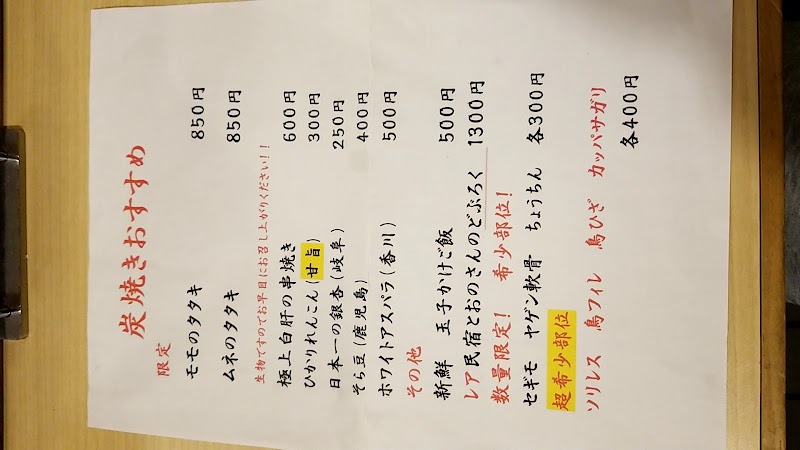 炭焼きおすすめ
限定
モモのタタキ 850円
ムネのタタキ 850円
生物ですのでお早目にお召し上がりください!!
極上白肝の串焼き 600円
ひかりれんこん(甘旨) 300円
日本一の銀杏(岐阜) 250円
そら豆(鹿児島) 400円
ホワイトアスパラ(香川) 500円
その他
新鮮 玉子かけご飯 500円
レア民宿とおのさんのどぶろく 1300円
数量限定! 希少部位!
セギモ ヤゲン軟骨 ちょうちん 各300円
超希少部位
ソリレス 鳥フィレ 鳥ひざ カッパサガリ
各400円